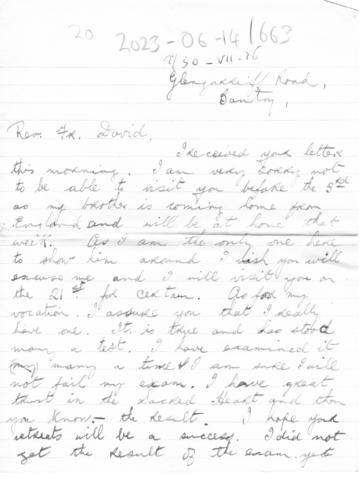 20
2023-06-14/663
30-VII-26
Glengarriff Road,
Bantry,
Rev. Fr. David.
I received your letter
this morning. I am very sorry not
to be able to visit you before the 3rd
as my brother is coming home from
England and will be at home that
week. As I am the only one here
to show him around I wish you will
excuse me and I will visit you on
the 21st for certain. As for my
vocation. I assure you that I really
have one. It is true and has stood
many a test. I have examined it
many a time & I am sure I will
not fail my exam. I have great
trust in the Sacred Heart and then
you know - the result. I hope your
retreats will be a success. I did not
get the result of the exam yet